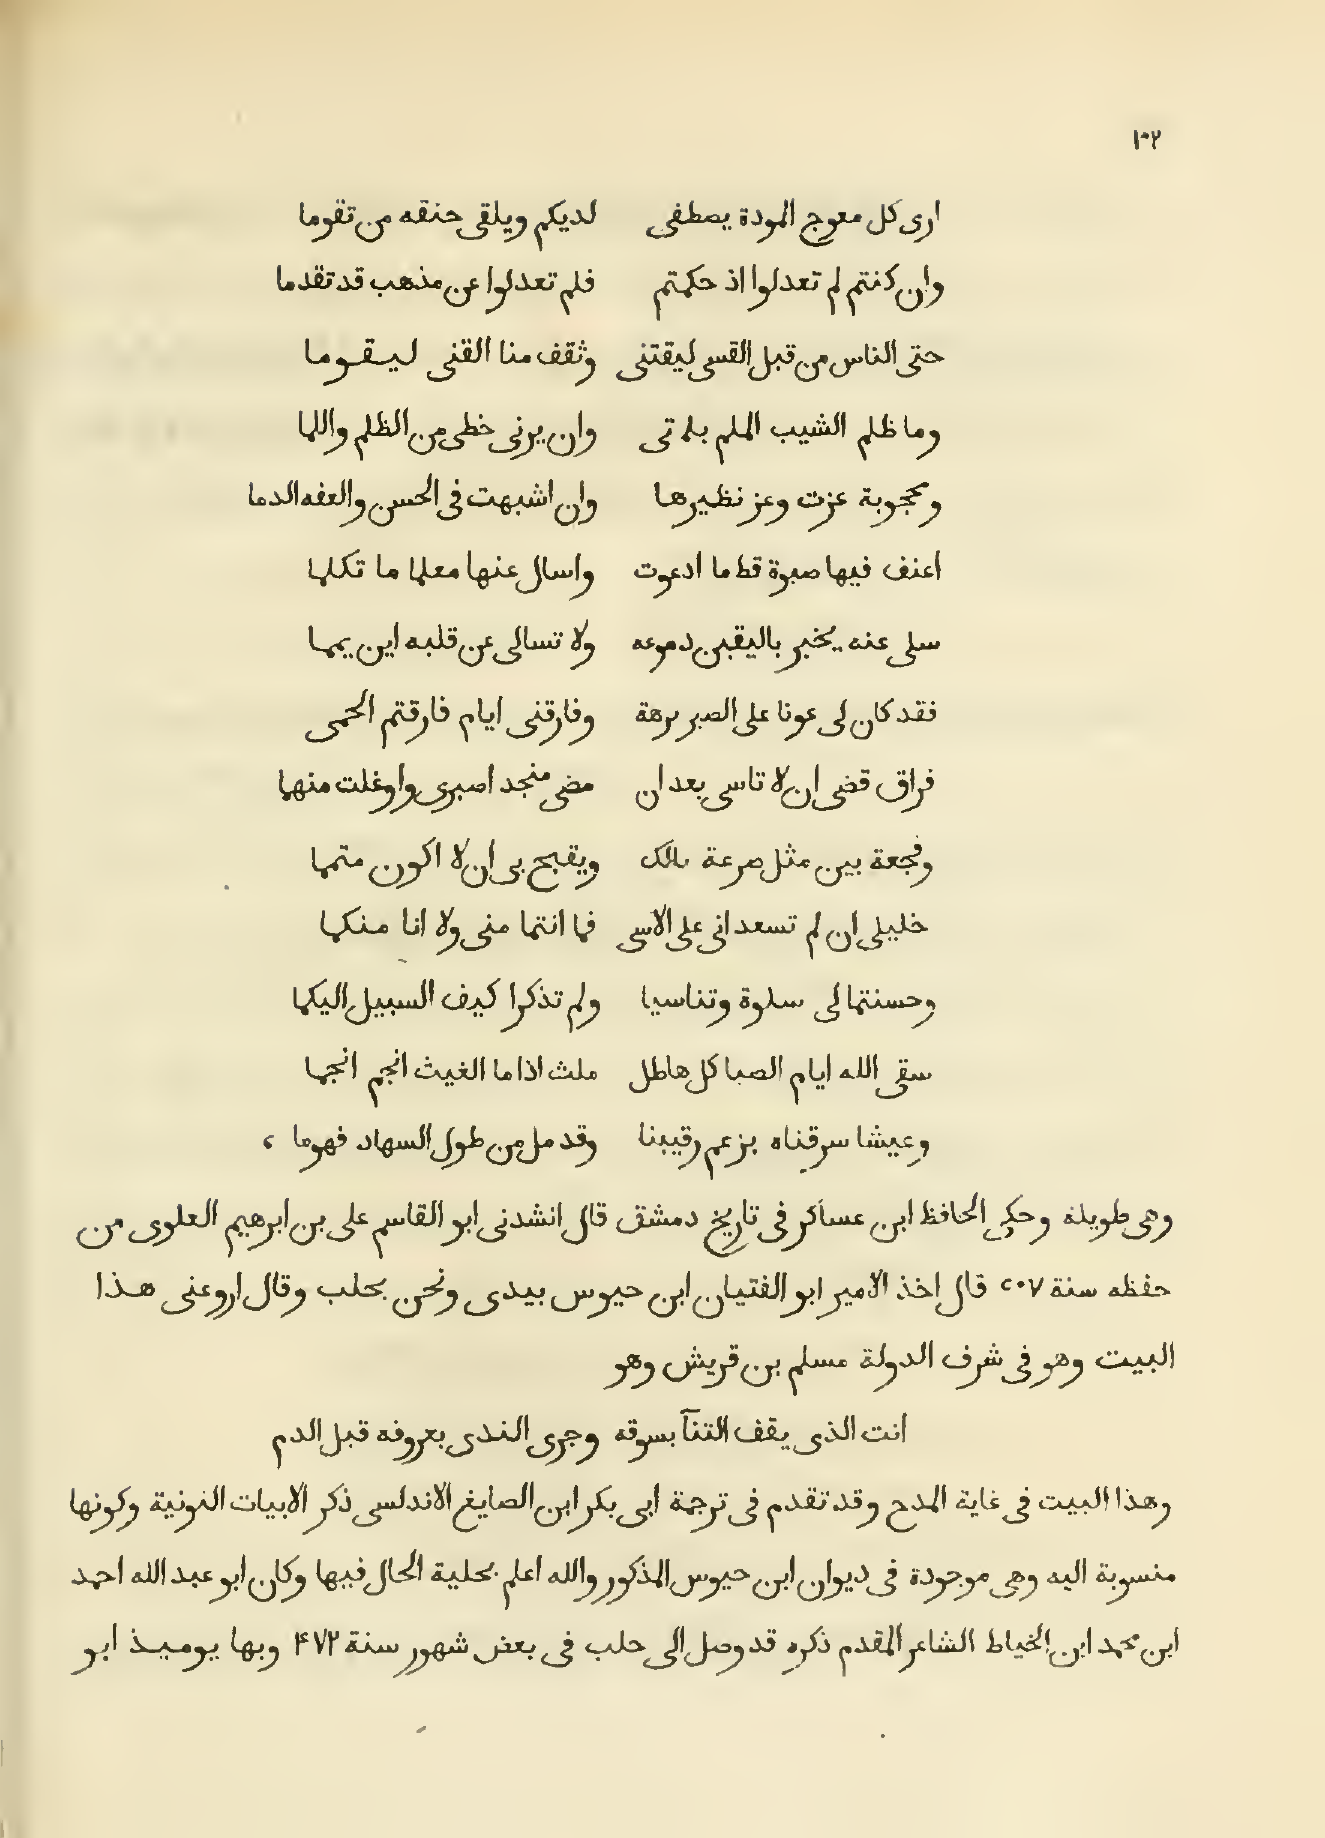 ١٠٢
ارى كل معوج المودة يصطفى لديكم ويلقى حنقه من تقوما
وان كنتم لم تعدلوا اذ حكمتم فلم تعدلوا عن مذهب قد تقدما
حتى الناس من قبل القسى ليقتنى وثقف منا القنى ليقوما
وما ظلم الشيب الملم بلمتى وان يرنى خطى من الظلم واللما
ومحجوبة عزت وعز نظيرها وان اشبهت فى الحسن والعفه الدما
اعنف فيها صبوة قط ما ادعوت واسال عنها معلما ما تكلما
سلى عنه يخبر باليقين دموعه ولا تسالى عن قلبه اين يمما
فقد كان لى عونا على الصبر برهة وفارقنى ايام فارقتم الحمى
فراق قضى ان لا تاسى بعد ان مضى منجد اصبرى واوغلت منهما
وفجعة بين مثل صرعة مالك ويقبح بى ان لا اكون متمما
خليلى ان لم تسعدانى على الاسى فما انتما منى ولا انا منكما
وحسنتما لى سلوة وتناسيا ولم تذكرا كيف السبيل اليكما
سقى الله ايام الصبا كل هاطل ملث اذا ما الغيث انجم انجما
وعيشا سرقناه بزعم رقيبنا وقد مل من طول السهاد فهوما
وهى طويلة وحكى الحافظ ابن عساكر فى تاريخ دمشق قال انشدنى ابو القاسم على بن ابرهيم العلوى من
حفظه سنة ٥٠٧ قال اخذ الامير ابو الفتيان ابن حيوس بيدى ونحن بحلب وقال اروعنى هذا
البيت وهو فى شرف الدولة مسلم بن قريش وهو
انت الذى يقف الثنآ بسوقه وجرى الندى بعروفه قبل الدم
وهذا البيت فى غاية المدح وقد تقدم فى ترجمة ابى بكر ابن الصايغ الاندلسى ذكر الابيات النونية وكونها
منسوبة اليه وهى موجودة فى ديوان ابن حيوس المذكور والله اعلم بحلية الحال فيها وكان ابو عبد الله احمد
ابن محمد ابن الخياط الشاعر المقدم ذكره قد وصل الى حلب فى بعض شهور سنة ٤٧٢ وبها يوميذ ابو